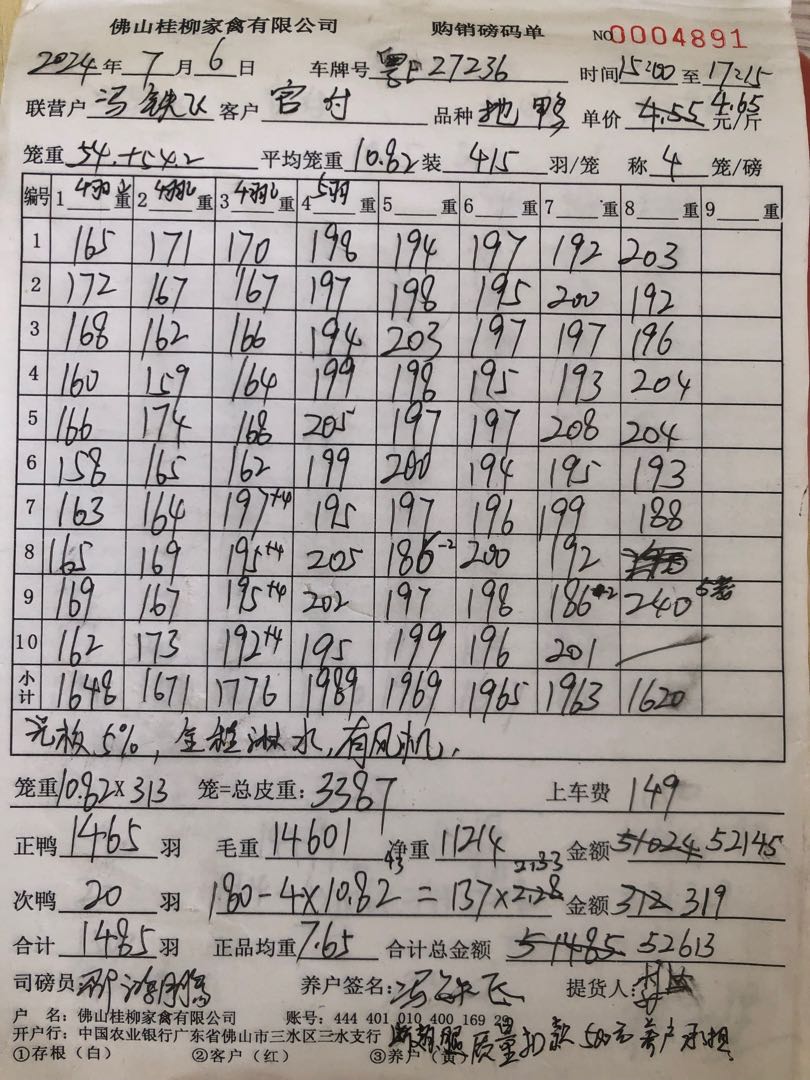 佛山桂柳家禽有限公司 购销磅码单 NO0004891
2024年7月6日 车牌号粤F27236 时间15:00至17:15
联营户冯铁飞客户官付 品种地鸭 单价4.55 4.65元/斤
笼重54.+54.2 平均笼重10.82装415羽/笼 称4笼/磅
编号 1 4羽重 2 4羽重 3 4羽重 4 5羽重 5重 6重 7重 8重 9重
1 165 171 170 198 194 197 192 203
2 172 167 167 197 198 195 200 192
3 168 162 166 194 203 197 197 196
4 160 159 164 199 198 195 193 204
5 166 174 168 205 197 197 208 204
6 158 165 162 199 200 194 195 193
7 163 164 197+4 195 197 196 199 188
8 165 169 195+4 205 186-2 200 192
9 169 167 195+4 202 197 198 186-2 240 5笼
10 162 173 192+4 195 199 196 201
小计 1648 1671 1776 1989 1969 1965 1963 1620
光板5%,全程淋水,有风机.
笼重10.82×313 笼=总皮重:3387 上车费149
正鸭1465羽 毛重14601 净重11214 金额51024 52145
次鸭20羽 180-4×10.82 43 =137×2.28 2.33 金额312 319
合计1485羽 正品均重7.65 合计总金额51485 52613
司磅员: 养户签名:冯铁飞 提货人:
户 名:佛山桂柳家禽有限公司 账号:444 401 010 400 169 29
开户行:中国农业银行广东省佛山市三水区三水支行 质量扣款500元养户承担
①存根(白) ②客户(红) ③养户(黄)